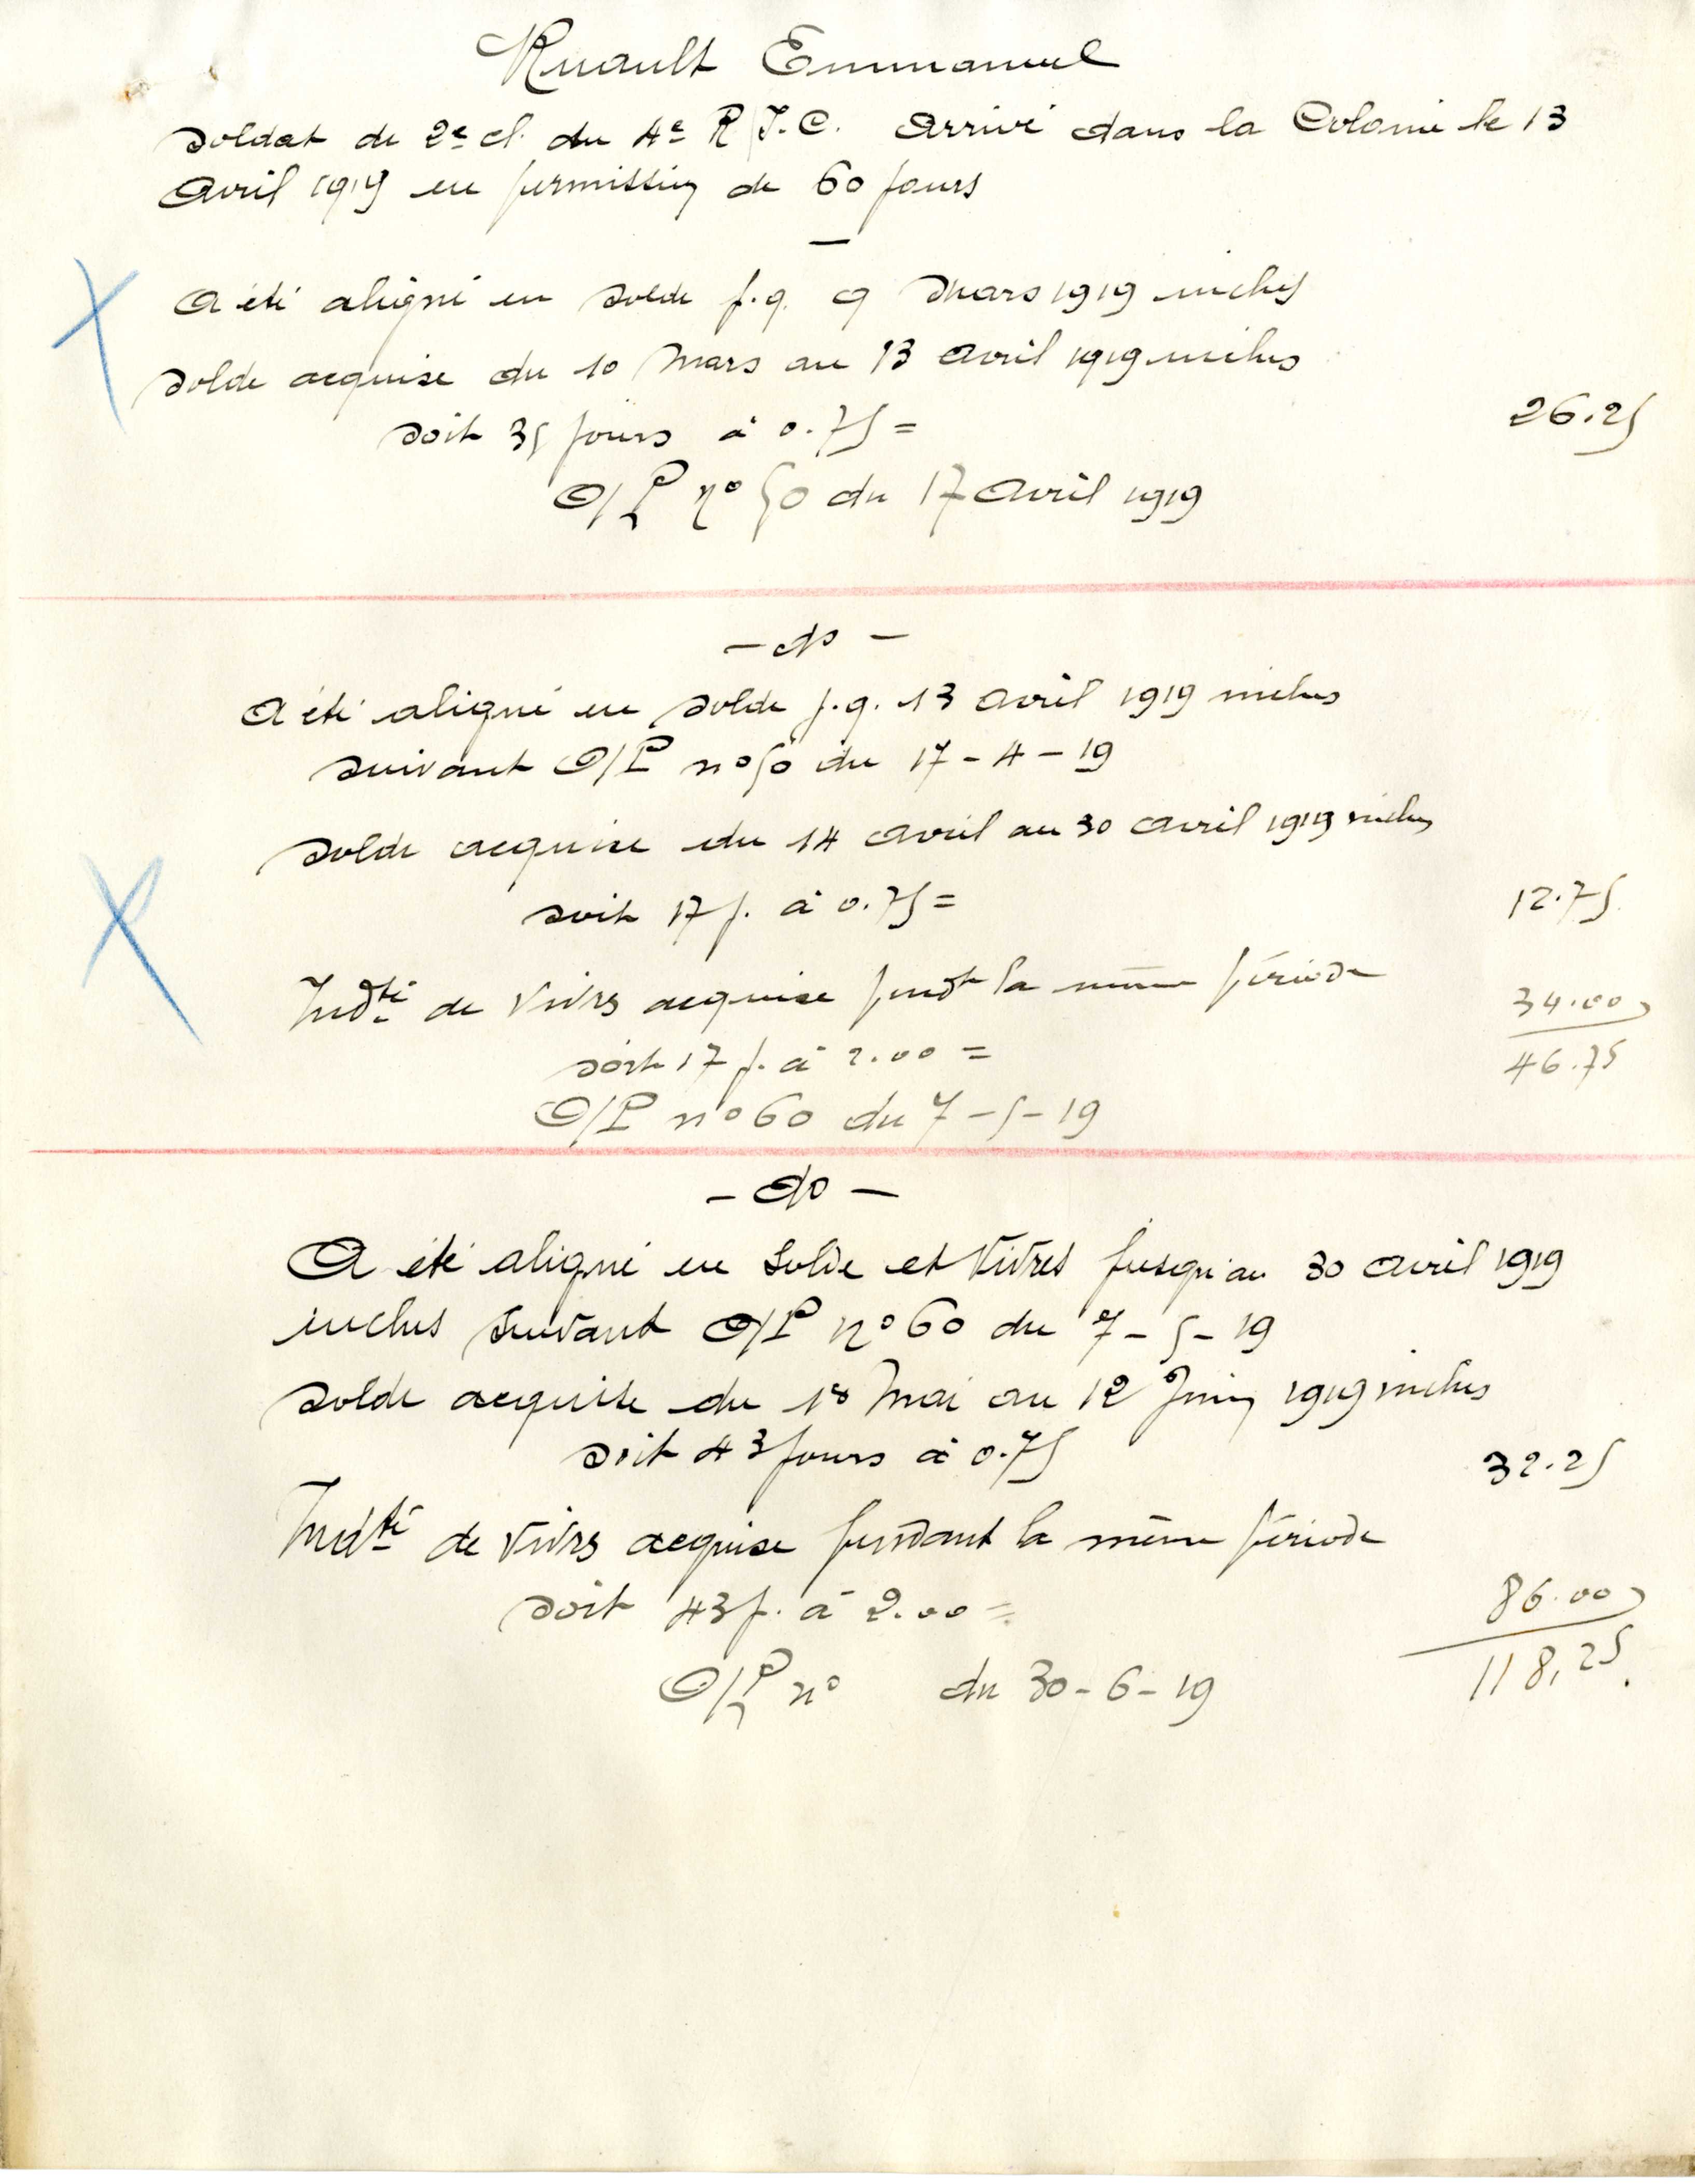 Ruault Emmanuel
Soldat de 2e cl. du 4e R.I.C. Arrivé dans la Colonie le 13
Avril 1919 en permission de 60 jours
A été aligné en solde j.q. 9 Mars 1919 inclus
Solde acquise du 10 Mars au 13 Avril 1919 inclus
soit 35 jours à 0.75 = 26.25
O/P n° 50 du 17 Avril 1919
- do -
A été aligné en solde j.q. 13 Avril 1919 inclus
suivant O/P n° 50 du 17-4-19
Solde acquise du 14 Avril au 30 Avril 1919 inclus
soit 17 j. à 0.75 = 12.75
Indté de Vivres acquise pendt la même période
soit 17 j. à 2.00 = 34.00
46.75
O/P n° 60 du 7-5-19
- do -
A été aligné en Solde et Vivres jusqu'au 30 Avril 1919
inclus suivant O/P n° 60 du 7-5-19
Solde acquise du 1er Mai au 12 Juin 1919 inclus
soit 43 jours à 0.75 32.25
Indté de Vivres acquise pendant la même période
soit 43 j. à 2.00 = 86.00
118,25.
O/P n° du 30-6-19